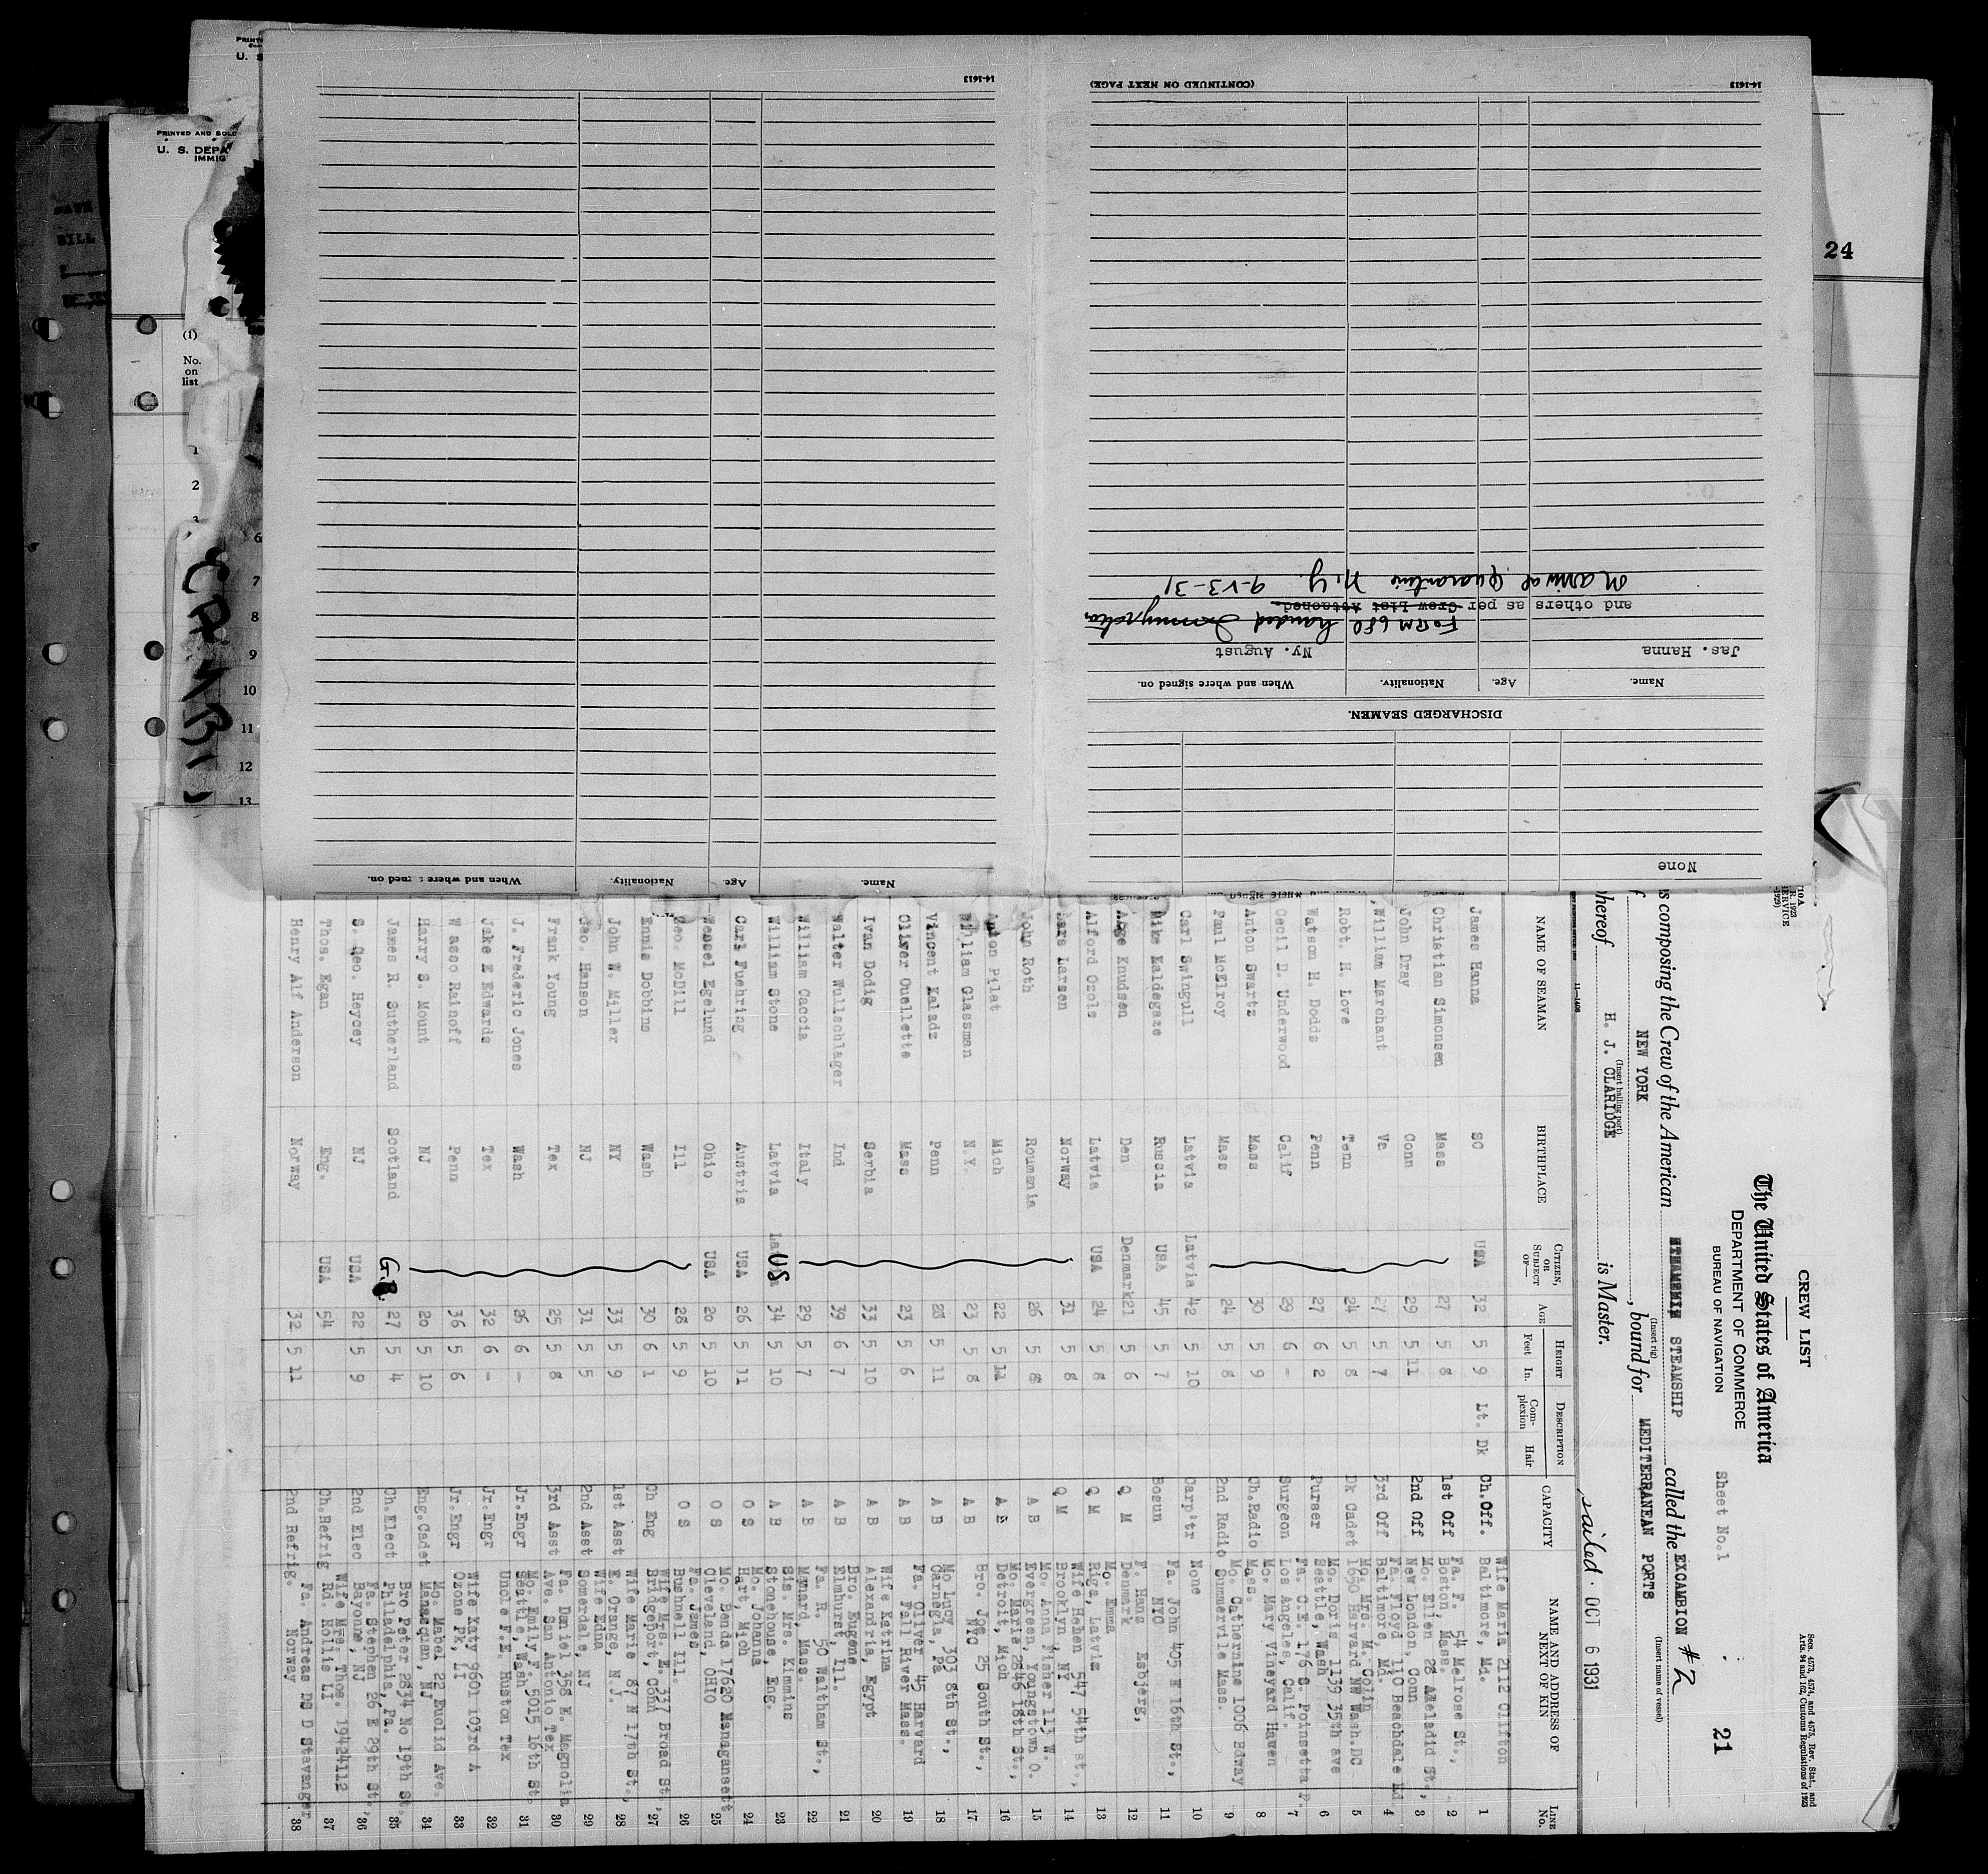 PRINTED AND SOLD
U. S. DEPA
IMMIG
24
(1)
No.
on
list
1
2
3
6
7
8
9
10
11
12
13
14-1613
(CONTINUED ON NEXT PAGE)
14-1613
None
DISCHARGED SEAMEN.
Name. Age. Nationality. When and where signed on.
Jas. Hanna Ny. August
FORM 680 handed
and others as per Crew List Attached.
Quarantine N.Y. 9-23-31
Name. Age. Nationality.
CREW LIST
The United States of America
DEPARTMENT OF COMMERCE
BUREAU OF NAVIGATION
Sheet No.1
21
Secs. 4573, 4574, and 4575, Rev. Stat., and
Arts. 94 and 162, Customs Regulations of 1923
is composing the Crew of the American STEAMSHIP called the EXCAMBION #2
(Insert rig) (Insert name of vessel)
NEW YORK, bound for MEDITERRANEAN PORTS
(Insert hailing port)
hereof H. J. CLARIDGE is Master.
Sailed OCT 6 1931
NAME OF SEAMAN BIRTHPLACE CITIZEN, OR SUBJECT OF— AGE HEIGHT Feet In. DESCRIPTION Complexion Hair CAPACITY NAME AND ADDRESS OF NEXT OF KIN LINE No.
James Hanna SC USA 32 5 9 Lt. Dk Ch.Off. Wife Maria 2112 Clifton Baltimore, Md. 1
Christian Simonsen Mass 27 5 8 1st Off Fa. F. 54 Melrose St., Boston, Mass. 2
John Dray Conn 29 5 11 2nd Off Mo. Ellen 28 Adelaid St., New London, Conn 3
William Marchant Va 27 5 7 3rd Off Fa. Floyd 110 Beachdale Rd Baltimore, Md. 4
Robt. H. Love Tenn 24 5 8 Dk Cadet Mo. Mrs. M. Colin 1650 Harvard NW Wash.DC 5
Watson H. Dodds Penn 27 6 2 Purser Mo. Doris 1139 35th ave Seattle, Wash 6
Cecil D. Underwood Calif 29 6 - Surgeon Fa. C.E. 176 S. Poinsetta P. Los Angeles, Calif. 7
Anton Swartz Mass 30 5 9 Ch.Radio Mo. Mary Vineyard Haven Mass. 8
Paul McElroy Mass 24 5 8 2nd Radio Mo. Cathernine 100b Bdway Summerville Mass. 9
Carl Swingull Latvia Latvia 42 5 10 Carp'tr None 10
Mike Kaldegaze Russia USA 45 5 7 Bosun Fa. John 405 E 16th St., NYC 11
Aage Knudsen Den Denmark 21 5 6 Q M F. Hans Esbjerg, Denmark 12
Alford Ozols Latvia USA 24 5 8 Q M Mo. Emma Riga, Latviz 13
Lars Larsen Norway 31 5 8 Q M Wife Helen 547 54th st., Brooklyn, NY 14
John Roth Roumania 26 5 8 A B Mo. Anna Fisher 113 W. Evergreen, Youngstown O. 15
Anton Pilat Mich 22 5 11 A B Mo. Marie 2846 18th St., Detroit, Mich 16
William Glassman N.Y. 23 5 8 A B Bro. Jos 25 South St., NYC 17
Vincent Kaladz Penn 28 5 11 A B Mo Lucy 303 8th St., Carnegia, Pa 18
Oliver Ouellette Mass 23 5 6 A B Fa. Oliver 45 Harvard Fall River Mass. 19
Ivan Dodig Serbia 33 5 10 A B Wife Katrina Alexandria, Egypt 20
Walter Wullschlager Ind 39 6 7 A B Bro. Eugene Elmhurst, Ill. 21
William Caccia Italy 29 5 7 A B Fa. R. 50 Waltham St., Maynard, Mass. 22
William Stone Latvia US 34 5 10 A B Sis. Mrs. Kimmins Stonehouse, Eng. 23
Carl Fuehring Austria USA 26 5 11 O S Mo. Johanna Hart, Mich 24
Wensel Egelund Ohio USA 20 5 10 O S Mo. Benda 17620 Managansett Cleveland, OHIO 25
Geo. McDill Ill 28 5 9 O S Fa. James Bushnell Ill. 26
Ennis Dobbins Wash 30 6 1 Ch Eng Wife Mrs. E. 337 Broad St., Bridgeport, Conn 27
John W. Miller NY 33 5 9 1st Asst Wife Marie 87 N 17th St., E. Orange, N.J. 28
Geo. Hanson NJ 31 5 5 2nd Asst Wife Edna Somerdale, NJ 29
Frank Young Tex 25 5 8 3rd Asst Fa. Daniel 358 E. Magnolia Ave. San Antonio Tex 30
J. Frederic Jones Wash 26 6 - Jr.Engr Mo. Emily F. 5015 16th St. Seattle, Wash 31
Jake E Edwards Tex 32 6 - Jr.Engr Uncle F.E. Huston Tex 32
W asso Rainoff Penn 36 5 6 Jr.Engr Wife Katy 9601 103rd A Ozone Pk, LI 33
Harry S. Mount NJ 20 5 10 Eng.Cadet Mo. Mabel 22 Euclid Ave. Manasquan, NJ 34
James R. Sutherland Scotland G.B. 27 5 4 Ch.Elect Bro Peter 2834 No 19th St. Philadelphia, Pa. 35
S. Geo. Heycey NJ USA 22 5 9 2nd Elec Fa. Stephen 26 E 29th St., Bayonne, NJ 36
Thos. Egan Eng. USA 54 Ch.Refrig Wife Mrs. Thos. 19424112 Rd. Hollis LI 37
Henry Alf Anderson Norway 32 5 11 2nd Refrig. Fa. Andreas DS D Stavanger Norway 38